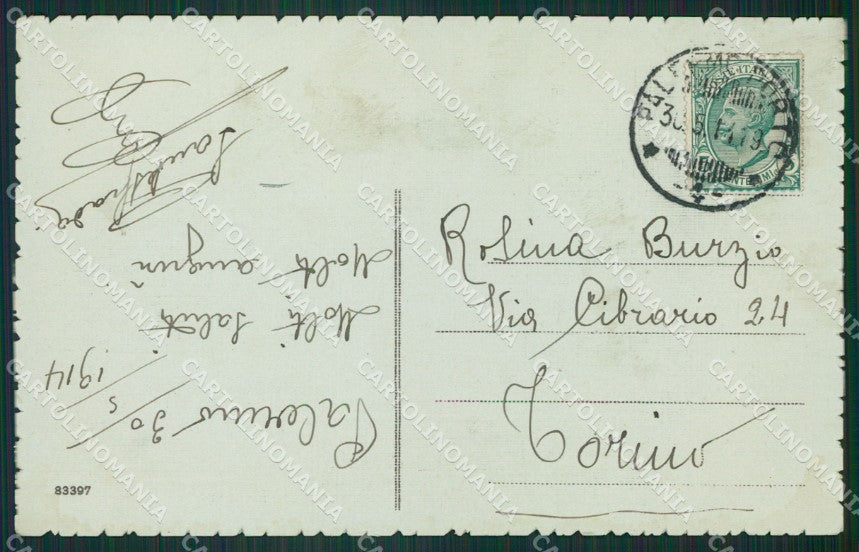 Palermo 30/5 1914
Molti saluti
Molti auguri
PALERMO PORTO
30.5.14.19
4
Rosina Burzio
Via Cibrario 24
Torino
83397
CARTOLINOMANIA